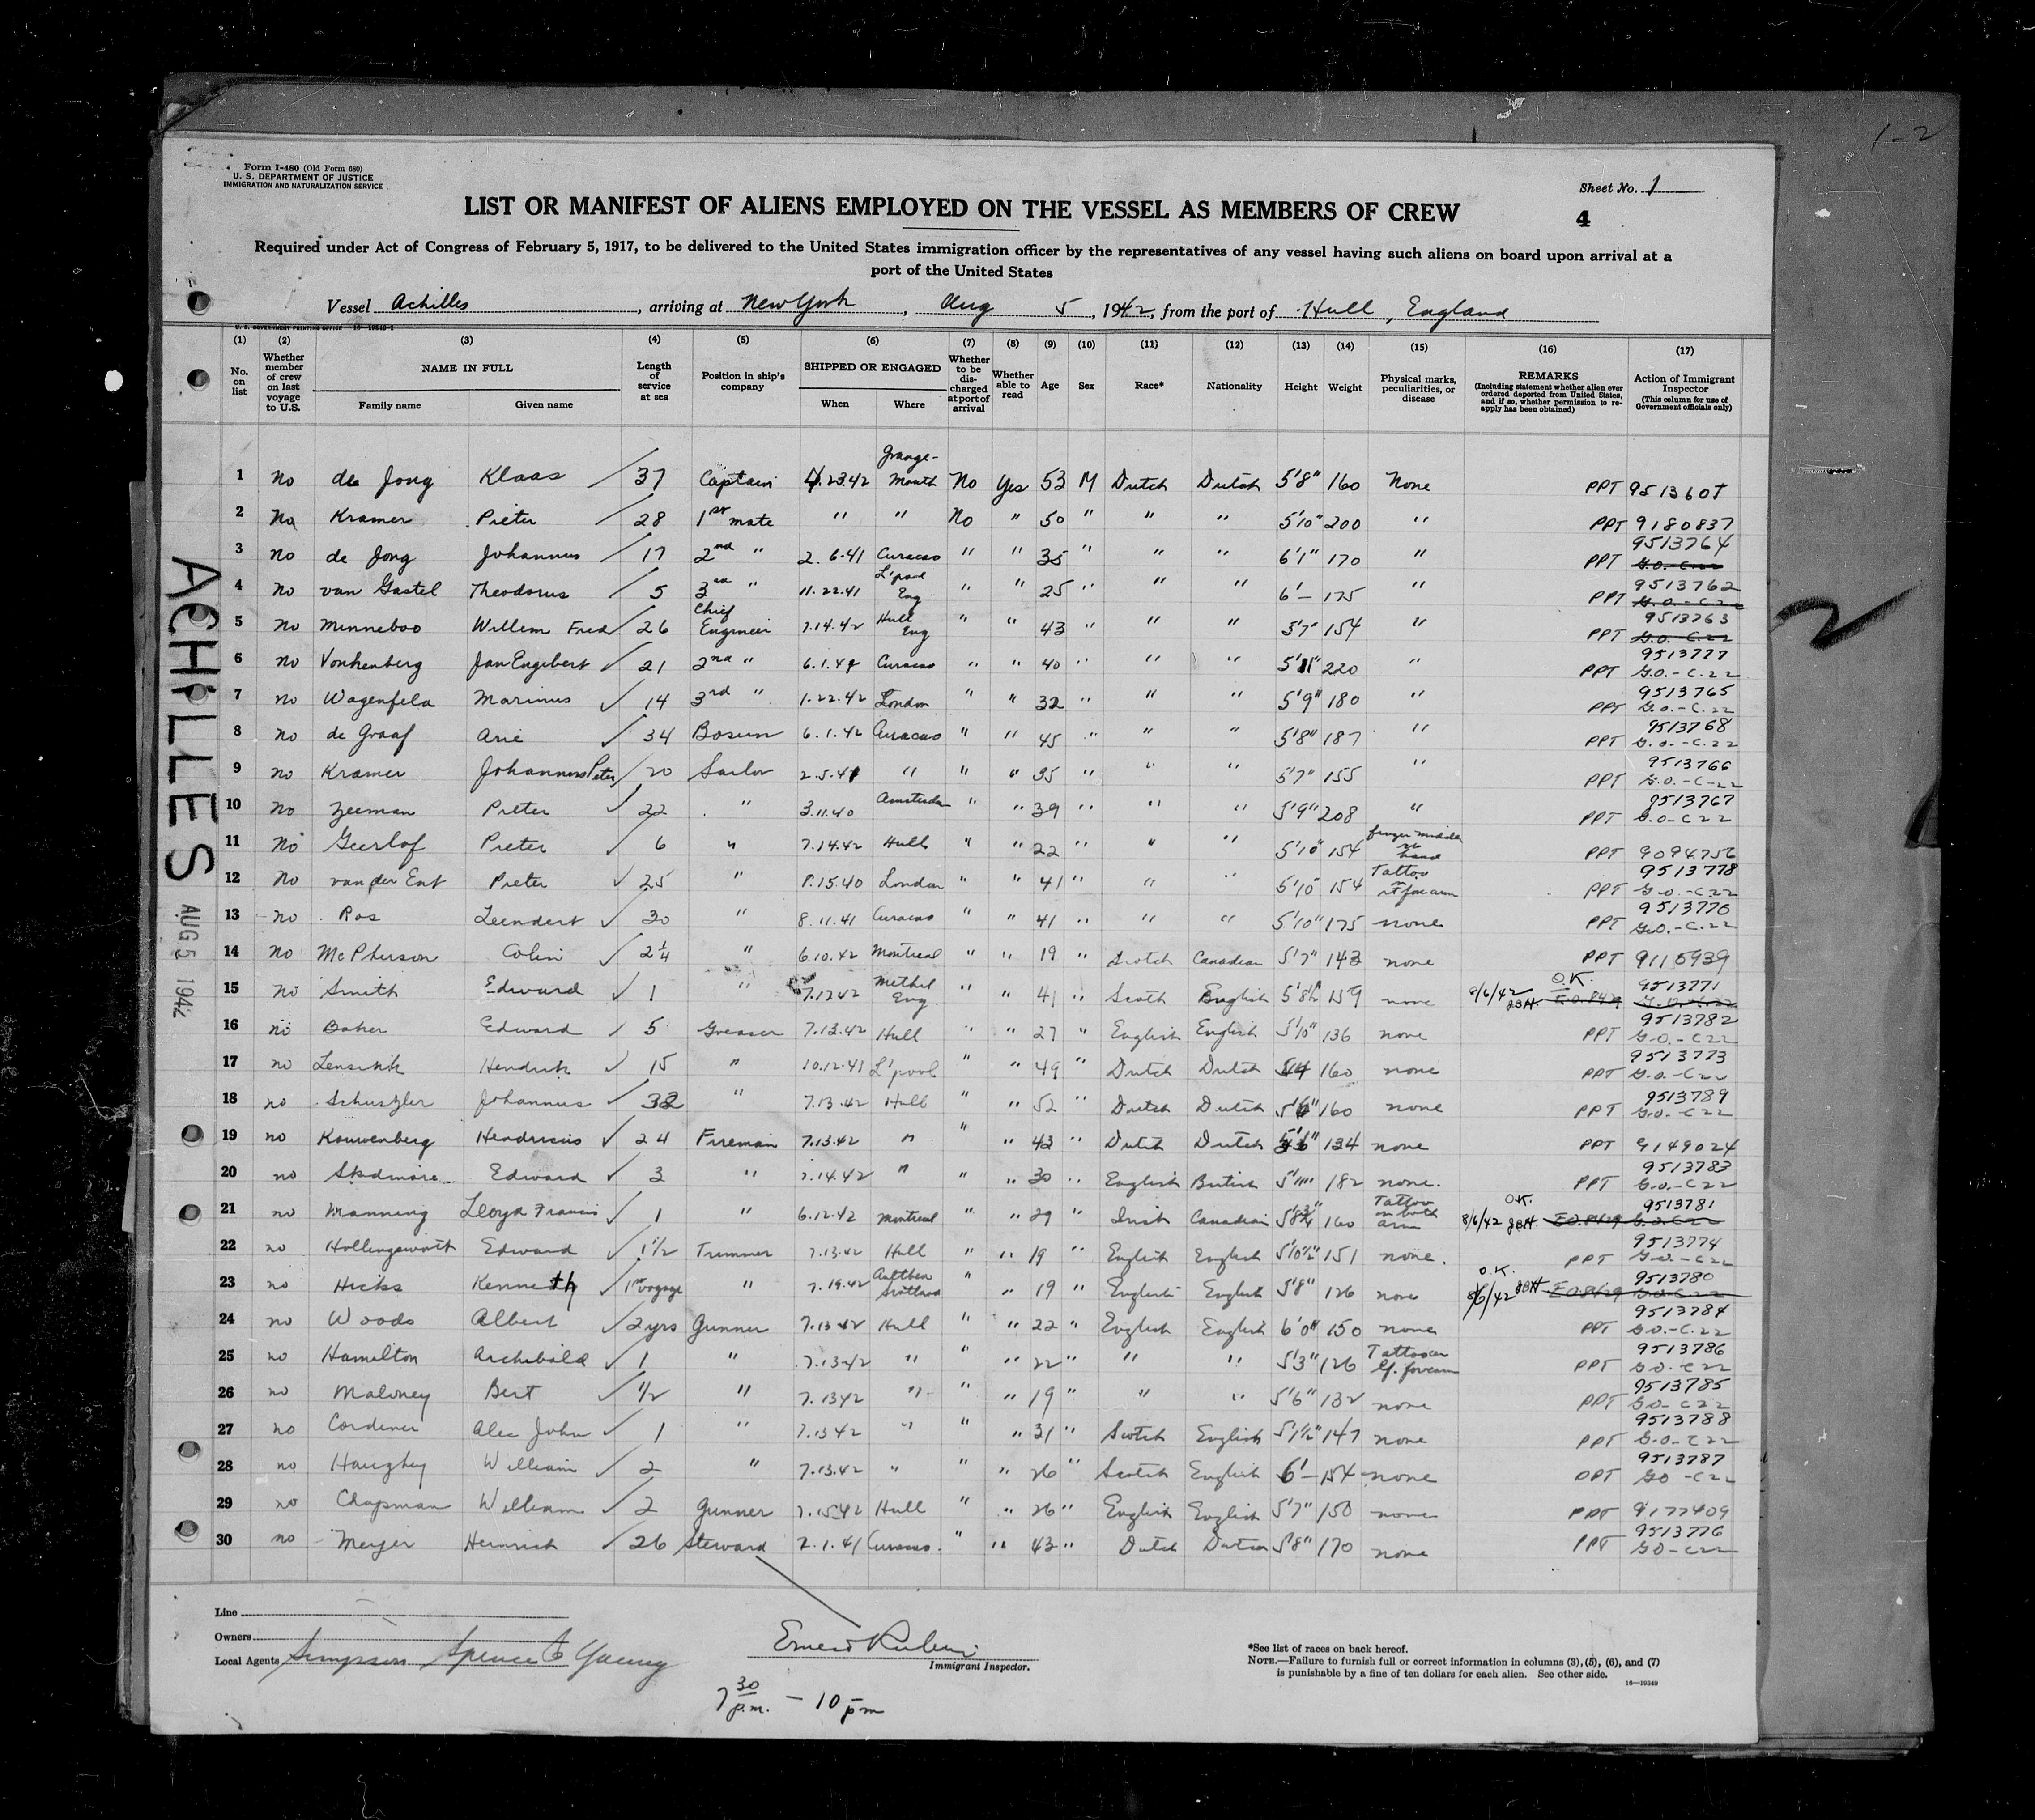 1-2
Form I-480 (Old Form 680)
U. S. DEPARTMENT OF JUSTICE
IMMIGRATION AND NATURALIZATION SERVICE
Sheet No. 1
LIST OR MANIFEST OF ALIENS EMPLOYED ON THE VESSEL AS MEMBERS OF CREW
4
Required under Act of Congress of February 5, 1917, to be delivered to the United States immigration officer by the representatives of any vessel having such aliens on board upon arrival at a
port of the United States
Vessel Achilles, arriving at New York, Aug 5, 1942, from the port of Hull, England
U. S. GOVERNMENT PRINTING OFFICE 16—19349-1
(1) (2) (3) (4) (5) (6) (7) (8) (9) (10) (11) (12) (13) (14) (15) (16) (17)
No. on list
Whether member of crew on last voyage to U.S.
NAME IN FULL
Family name
Given name
Length of service at sea
Position in ship's company
SHIPPED OR ENGAGED
When
Where
Whether to be discharged at port of arrival
Whether able to read
Age
Sex
Race*
Nationality
Height
Weight
Physical marks, peculiarities, or disease
REMARKS
(Including statement whether alien ever ordered deported from United States, and if so, whether permission to reapply has been obtained)
Action of Immigrant Inspector
(This column for use of Government officials only)
1 No de Jong Klaas 37 Captain 4.23.42 Grange-Mouth No Yes 53 M Dutch Dutch 5'8" 160 None PPT 951360T
2 No Kramer Pieter 28 1st mate " " No " 50 " " " 5'10" 200 " PPT 9180837
3 No de Jong Johannus 17 2nd " 2.6.41 Curacao " " 35 " " " 6'1" 170 " PPT 9513764 G.O.-C.22
4 No van Gastel Theodorus 5 3rd " 11.22.41 L'pool Eng " " 25 " " " 6'— 175 " PPT 9513762 G.O.-C22
5 No Minneboo Willem Fred 26 Chief Engineer 7.14.42 Hull Eng " " 43 " " " 5'7" 154 " PPT 9513763 G.O.-C.22
6 No Vonkenberg Jan Engelbert 21 2nd " 6.1.42 Curacao " " 40 " " " 5'11" 220 " PPT 9513777 G.O.-C.22
7 no Wagenfela Marinus 14 3rd " 1.22.42 London " " 32 " " " 5'9" 180 " PPT 9513765 G.O.-C.22
8 no de Graaf Arie 34 Bosun 6.1.42 Curacao " " 45 " " " 5'8" 187 " PPT 9513768 G.O.-C.22
9 no Kramer Johannes Peter 20 Sailor 2.5.41 " " " 35 " " " 5'7" 155 " PPT 9513766 G.O.-C-22
10 no Zeeman Pieter 22 " 3.11.40 Amsterdam " " 39 " " " 5'9" 208 " PPT 9513767 G.O-C22
11 No Geerlof Pieter 6 " 7.14.42 Hull " " 22 " " " 5'10" 154 finger middle hand PPT 9094756
12 No van der Ent Pieter 25 " 8.15.40 London " " 41 " " " 5'10" 154 Tattoo rt forearm PPT 9513778 G.O.-C22
13 no Ros Leendert 30 " 8.11.41 Curacao " " 41 " " " 5'10" 175 none PPT 9513770 G.O.-C.22
14 No McPherson Colin 2 1/4 " 6.10.42 Montreal " " 19 " Scotch Canadian 5'7" 143 none PPT 9115939
15 no Smith Edward 1 " 7.17.42 Methil Eng. " " 41 " Scotch English 5'8½ 159 none 8/6/42 O.K. E.O.8429 9513771 G.O.-C.22
16 no Baker Edward 5 Greaser 7.13.42 Hull " " 27 " English English 5'10" 136 none PPT 9513782 G.O.-C22
17 no Lensink Hendrik 15 " 10.12.41 L'pool " " 49 " Dutch Dutch 160 none PPT 9513773 G.O.-C22
18 no Schuszler Johannus 32 " 7.13.42 Hull " " 52 " Dutch Dutch 5'6" 160 none PPT 9513789 G.O.-C22
19 no Kouwenberg Hendricus 24 Fireman 7.13.42 " " " 43 " Dutch Dutch 5'6" 134 none PPT 9149024
20 no Skidmore Edward 3 " 7.14.42 " " " 30 " English British 5'11" 182 none. PPT 9513783 G.O.-C22
21 no Manning Lloyd Francis 1 " 6.12.42 Montreal " " 29 " Irish Canadian 160 Tattoo on both arm 8/6/42 O.K. E.O.8429 9513781 G.O.C22
22 no Hollingsworth Edward 1½ Trimmer 7.13.42 Hull " " 19 " English English 5'10½" 151 none. PPT 9513774 G.O.-C22
23 no Hicks Kenneth 1st voyage " 7.19.42 Scotland " " 19 " English English 5'8" 126 none 8/6/42 O.K. E.O.8429 9513780 G.O.C22
24 no Woods Albert 2yrs Gunner 7.13.42 Hull " " 22 " English English 6'0" 150 none PPT 9513784 G.O.-C.22
25 no Hamilton Archibald 1 " 7.13.42 " " " 22 " " " 5'3" 126 Tattoo on lf. forearm PPT 9513786 G.O.-C22
26 no Maloney Bert ½ " 7.13.42 " " " 19 " " " 5'6" 132 none PPT 9513785 G.O-C22
27 no Cordiner Alec John 1 " 7.13.42 " " 31 " Scotch English 5'1½" 147 none PPT 9513788 G.O.-C22
28 no Haughey William 2 " 7.13.42 " " " 26 " Scotch English 6'— 154 none PPT 9513787 GO-C22
29 no Chapman William 2 Gunner 7.15.42 Hull " " 26 " English English 5'7" 150 none PPT 9177409
30 no Meijer Heinrich 26 Steward 2.1.41 Curacao. " " 43 " Dutch Dutch 5'8" 170 none PPT 9513776 GO-C22
ACHILLES
AUG 5 1942
2
Line
Owners
Local Agents Simpson Spence & Young
Immigrant Inspector.
7 30 p.m. — 10 pm
*See list of races on back hereof.
NOTE.—Failure to furnish full or correct information in columns (3), (5), (6), and (7)
is punishable by a fine of ten dollars for each alien. See other side.
16—19349